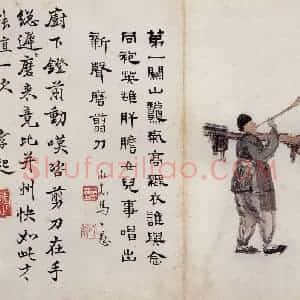 第一關山氣高衣誰與念
同袍英雄肝膽女兒事唱出
新聲磨剪刀
馬
廚下鐙前動嘆咨剪刀在手
總遲磨來竟比并州快如此才
一文
Shufaziliao.com